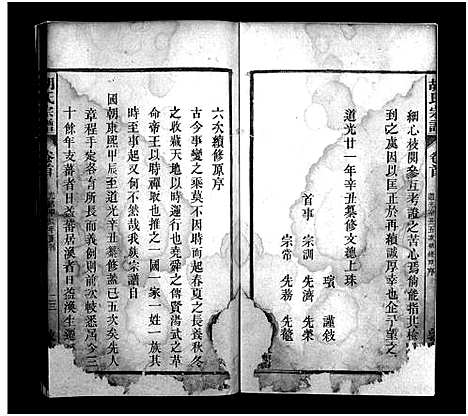 胡氏宗譜
卷首
細心校閱參五考證之苦心焉倘能指其檢
到之處因以匡正於再續誠厚幸也企予望之
道光廿一年辛丑纂修文德上珠
瓊 謹敘
首事 宗訓 先濟 先榮
宗常 先務 先鼇
六次續修原序
古今事變之乘莫不因時而起春夏之長養秋冬
之收藏天地以時運行也堯舜之傳賢湯武之革
命帝王以時禪取也推之一國一家一姓一族其
時至事起又何不然哉我族宗譜自
國朝康熙甲辰至道光辛丑纂修蓋已五次矣先人
章程手定各有所長而義例則前次較悉焉今三
十餘年支蕃者日益蕃居溪者日益渙生運
胡氏宗譜
卷首